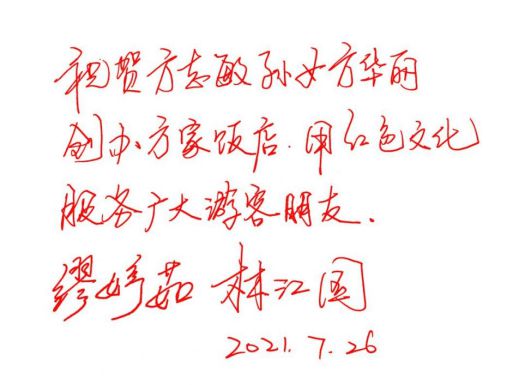 祝贺方志敏孙女方华丽
创办方家饭店.用红色文化
服务广大游客朋友.
缪婷茹 林江国
2021.7.26